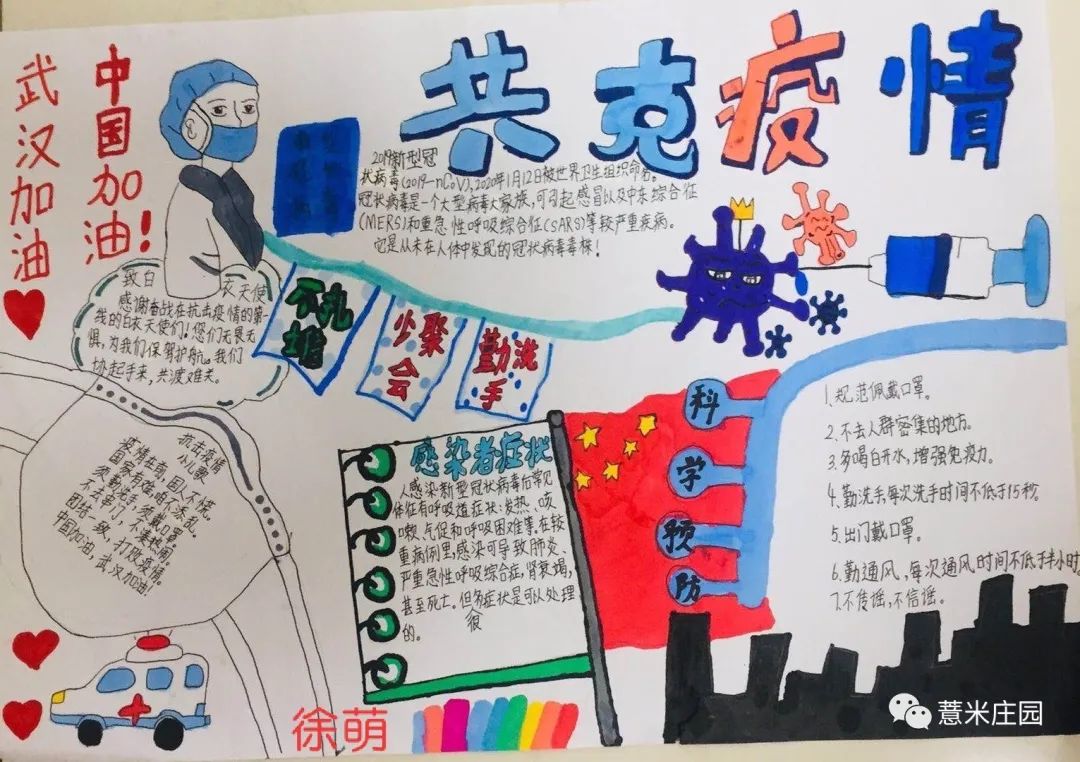 共克疫情
武汉加油
中国加油!
2019新型冠
状病毒(2019-nCoV),2020年1月12日被世界卫生组织命名。
冠状病毒是一个大型病毒大家族,可引起感冒以及中东综合征
(MERS)和重急性呼吸综合征(SARS)等较严重疾病。
它是从未在人体中发现的冠状病毒毒株!
致白衣天使
感谢奋战在抗击疫情的第一
线的白衣天使们!您们无畏无
惧,为我们保驾护航。我们
协起手来,共渡难关。
不扎堆
少聚会
勤洗手
抗击疫情
小儿歌
疫情在前,国人不慌。
国家有难,咱不添乱。
须勤洗手,须戴口罩。
不去串门,不凑热闹。
团结一致,打败疫情。
中国加油,武汉加油!
感染者症状
人感染新型冠状病毒后常见
体征有呼吸道症状:发热、咳
嗽、气促和呼吸困难等。在较
重病例里,感染可导致肺炎、
严重急性呼吸综合症,肾衰竭,
甚至死亡。但很多症状是可以处理
的。
科学预防
1、规范佩戴口罩。
2、不去人群密集的地方。
3、多喝白开水,增强免疫力。
4、勤洗手,每次洗手时间不低于15秒。
5、出门戴口罩。
6、勤通风,每次通风时间不低于半小时
7、不传谣,不信谣。
徐萌
薏米庄园